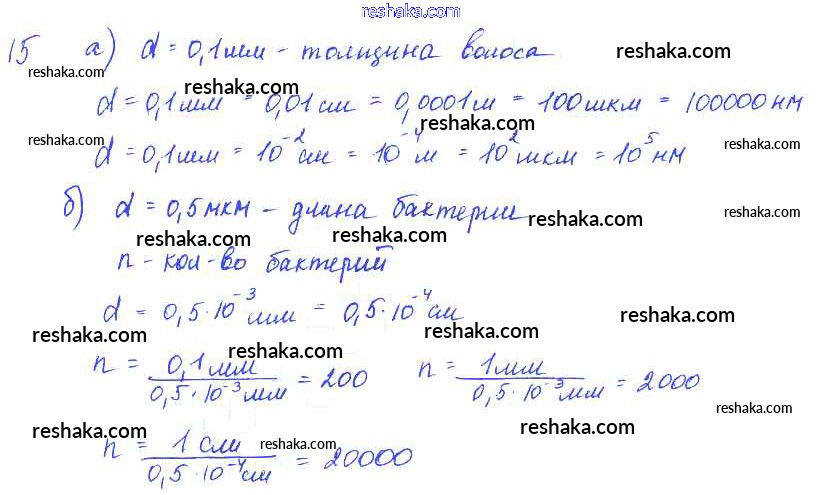 reshaka.com
15 а) d = 0,1мм - толщина волоса reshaka.com
reshaka.com reshaka.com
d = 0,1мм = 0,01см = 0,0001м = 100мкм = 100000нм
reshaka.com reshaka.com
d = 0,1мм = 10⁻²см = 10⁻⁴м = 10²мкм = 10⁵нм
reshaka.com reshaka.com
б) d = 0,5мкм - длина бактерии reshaka.com reshaka.com
reshaka.com reshaka.com
n - кол-во бактерий
d = 0,5·10⁻³мм = 0,5·10⁻⁴см reshaka.com
reshaka.com reshaka.com reshaka.com
n = 0,1мм / 0,5·10⁻³мм = 200 n = 1мм / 0,5·10⁻³мм = 2000
reshaka.com reshaka.com
reshaka.com reshaka.com reshaka.com
n = 1см / 0,5·10⁻⁴см = 20000